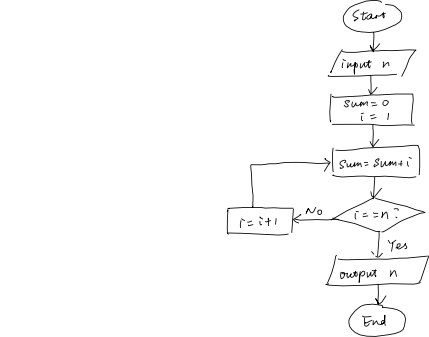 Start
input n
sum=0
i = 1
sum=sum+i
i==n?
No
i=i+1
Yes
output n
End